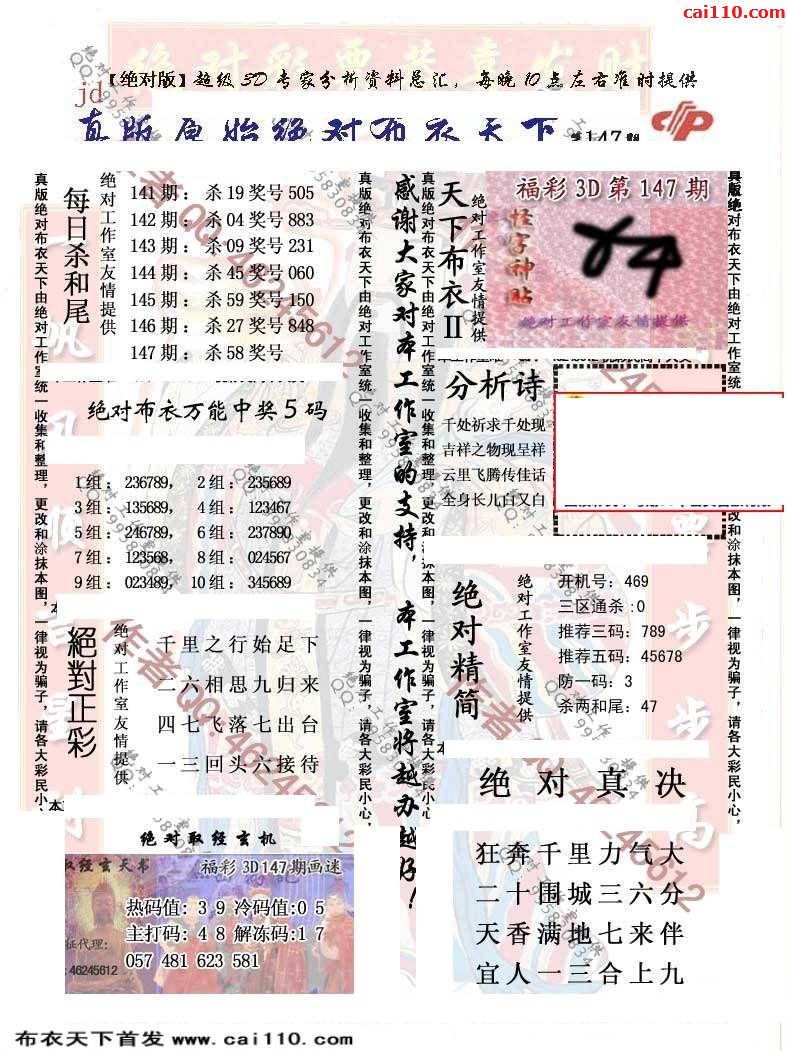 cai110.com
【绝对版】超级3D专家分析资料总汇，每晚10点左右准时提供
jd
真版原始绝对布衣天下 第147期
每日杀和尾
绝对工作室友情提供
141期：杀19奖号505
142期：杀04奖号883
143期：杀09奖号231
144期：杀45奖号060
145期：杀59奖号150
146期：杀27奖号848
147期：杀58奖号
绝对布衣万能中奖5码
1组：236789，2组：235689
3组：135689，4组：123467
5组：246789，6组：237890
7组：123568，8组：024567
9组：023489，10组：345689
絕對正彩
绝对工作室友情提供
千里之行始足下
二六相思九归来
四七飞落七出台
一三回头六接待
绝对取经玄机
取经玄天书
福彩3D147期画迷
热码值：39冷码值:05
主打码：48解冻码:17
057 481 623 581
征代理：
:46245612
真版绝对布衣天下由绝对工作室统一收集和整理，更改和涂抹本图，一律视为骗子，请各大彩民小心，
真版绝对布衣天下由绝对工作室统一收集和整理，更改和涂抹本图，一律视为骗子，请各大彩民小心，
感谢大家对本工作室的支持，本工作室将越办越好！
真版绝对布衣天下由绝对工作室统一收集和整理，更改和涂抹本图，一律视为骗子，请各大彩民小心，
天下布衣II
绝对工作室友情提供
福彩3D第147期
怪字神贴
绝对工作室友情提供
分析诗
千处祈求千处现
吉祥之物现呈祥
云里飞腾传佳话
全身长儿白又白
绝对精简
绝对工作室友情提供
开机号：469
三区通杀:0
推荐三码：789
推荐五码：45678
防一码：3
杀两和尾：47
绝对真决
狂奔千里力气大
二十围城三六分
天香满地七来伴
宜人一三合上九
真版绝对布衣天下由绝对工作室统
改和涂抹本图，一律视为骗子，请各大彩民小心，
作者QQ:46245612
布衣天下首发 www.cai110.com